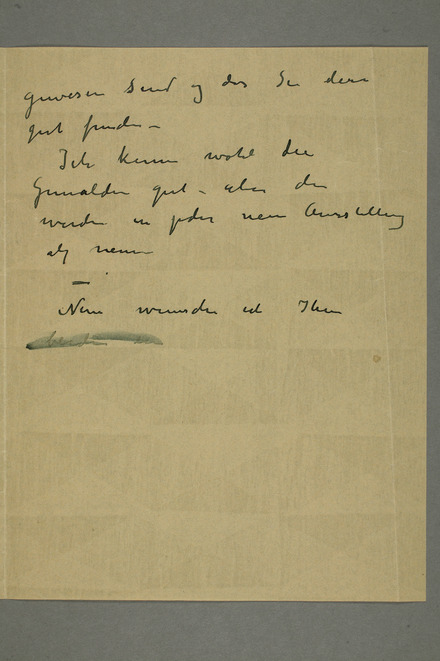 gewesen sind og das Sie den
gut finden –
Ich kenne wohl die
Gemälden gut – aber die
werden in jeder neue Ausstellung
als neue
–
Nun wunsche ich Ihnen